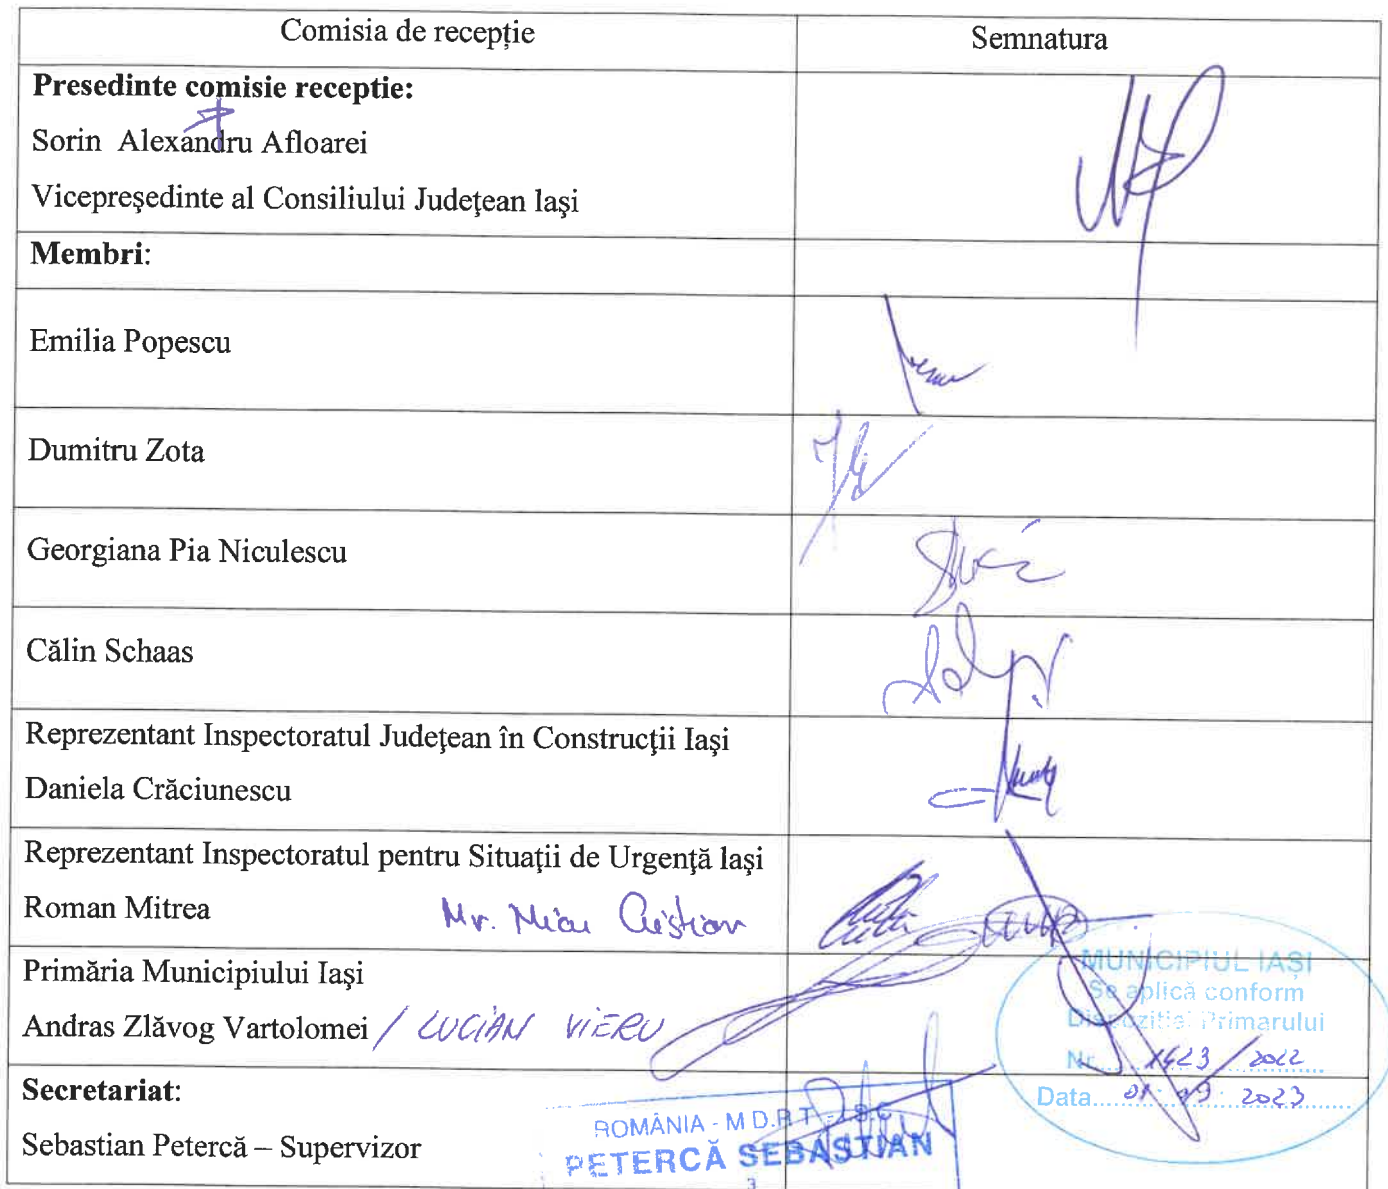 Comisia de recepție
Semnatura
Presedinte comisie receptie:
Sorin Alexandru Afloarei
Vicepreşedinte al Consiliului Judeţean Iaşi
Membri:
Emilia Popescu
Dumitru Zota
Georgiana Pia Niculescu
Călin Schaas
Reprezentant Inspectoratul Judeţean în Construcţii Iaşi
Daniela Crăciunescu
Reprezentant Inspectoratul pentru Situaţii de Urgenţă Iaşi
Roman Mitrea
Mr. Micu Cristian
Primăria Municipiului Iaşi
Andras Zlăvog Vartolomei / LUCIAN VIERU
MUNICIPIUL IAȘI
Se aplică conform
Dispoziției Primarului
Nr. 1423 / 2022
Data 01.09.2023
Secretariat:
Sebastian Petercă – Supervizor
ROMÂNIA - M.D.R.T - I.S.C.
PETERCĂ SEBASTIAN